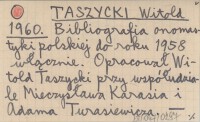 TASZYCKI Witold
1960. Bibliografia onomas-
tyki polskiej do roku 1958
włącznie. Opracował Wi-
told Taszycki przy współudzia-
le Mieczysława Karasia i
Adama Turasiewicza. —